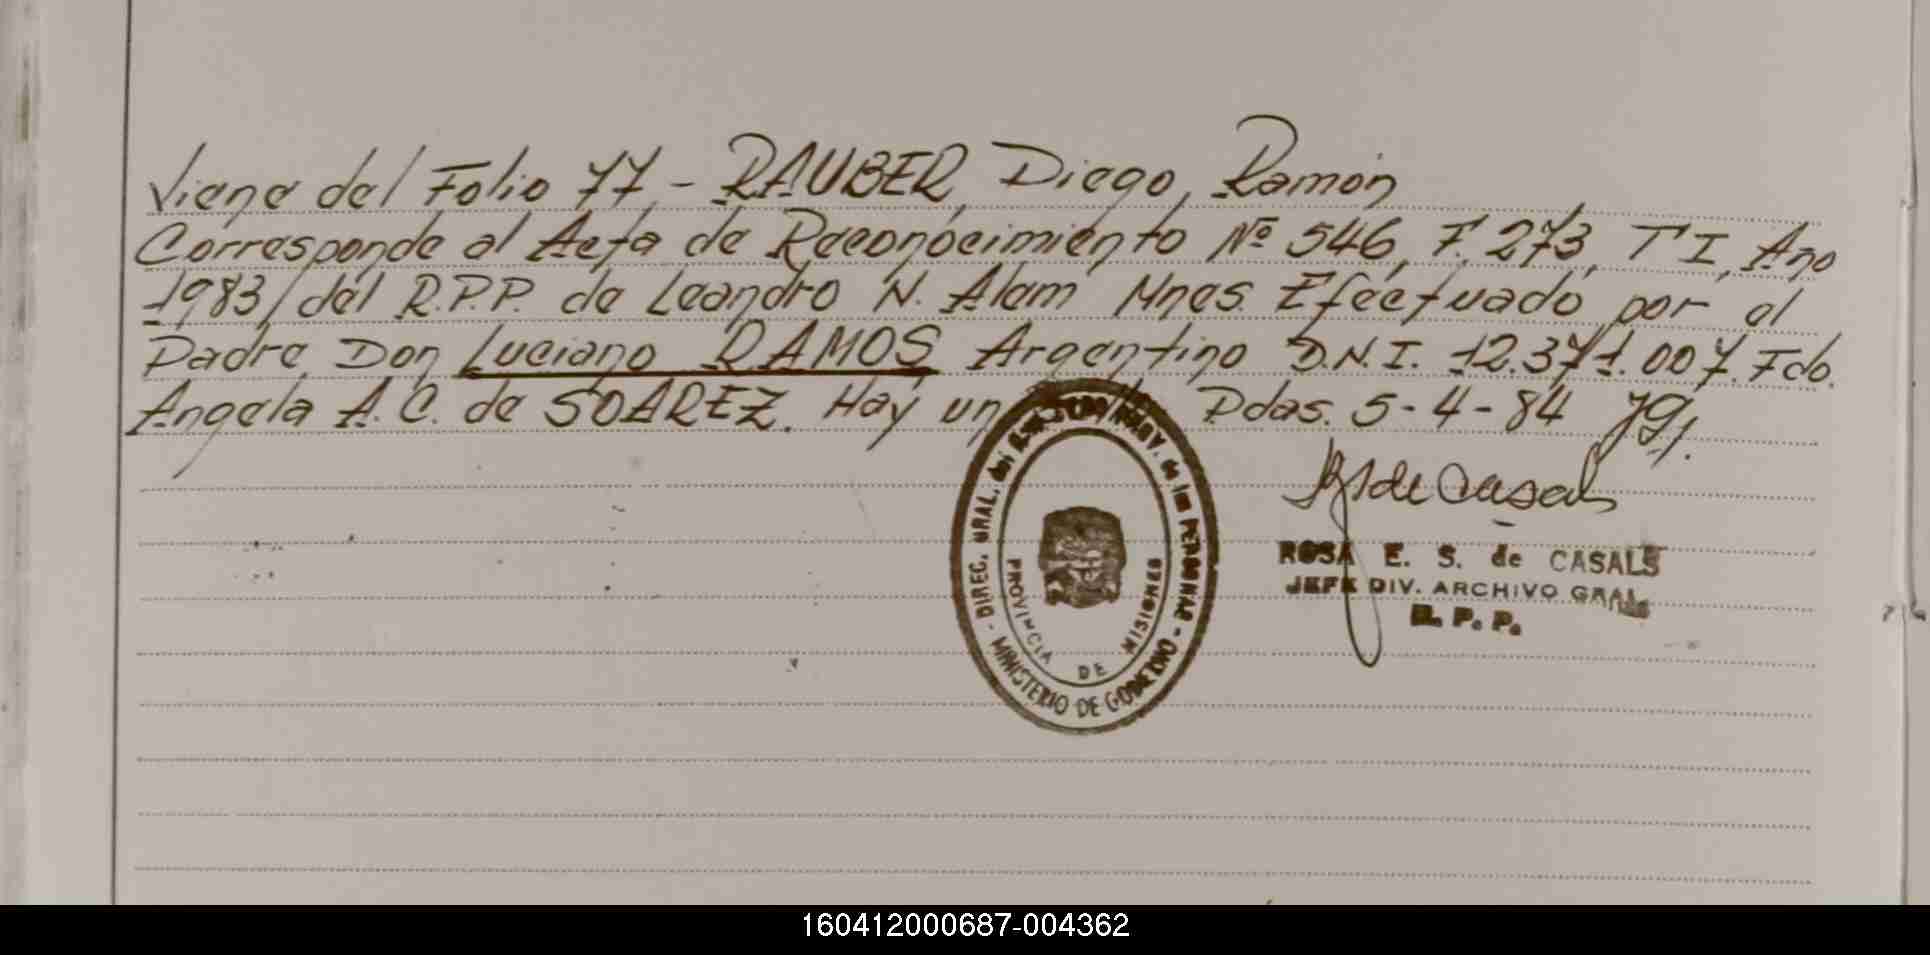 Viene del Folio 77 - RAUBER, Diego, Ramón
Corresponde al Acta de Reconocimiento Nº 546, F. 273, Tº I, Año
1983, del R.P.P. de Leandro N. Alem Mnes. Efectuado por el
Padre, Don Luciano RAMOS Argentino D.N.I. 12.371.007. Fdo.
Angela A. C. de SOAREZ. Hay un Pdas. 5-4-84
de Casals
ROSA E. S. de CASALS
JEFE DIV. ARCHIVO GRAL.
R. P. P.
DIREC. GRAL. del de las PERSONAS - MINISTERIO DE GOBIERNO -
PROVINCIA DE MISIONES
160412000687-004362